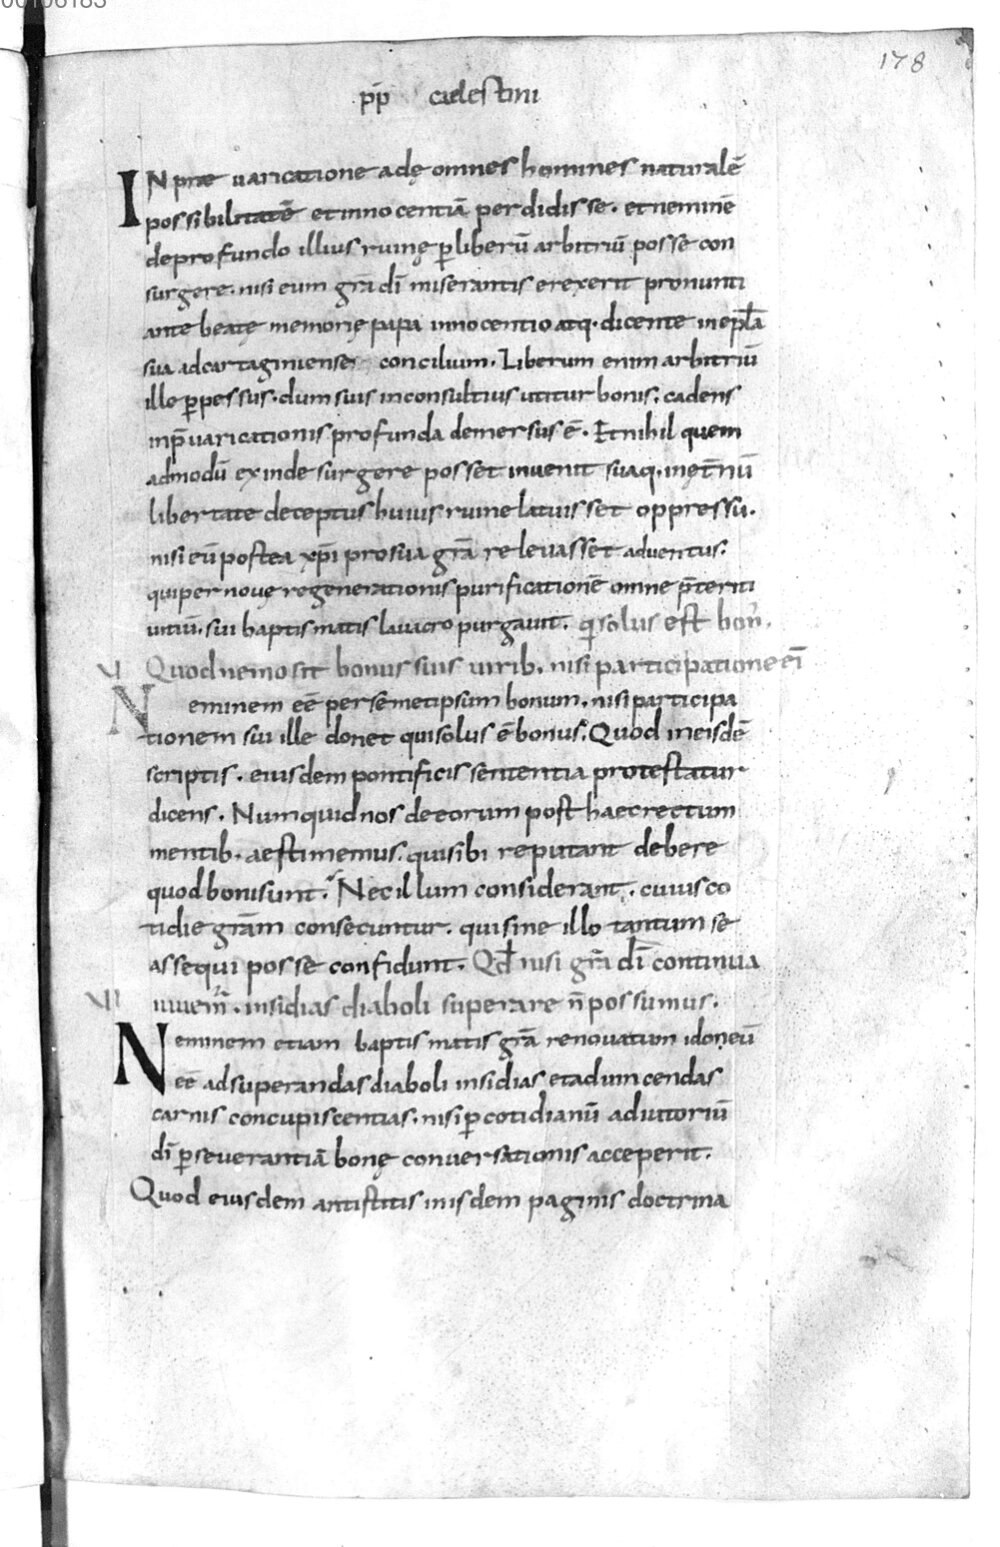 178
pp̄ caelestini
IN prae uaricatione adę omnes homines naturalē
possibilitatē et innocentiā perdidisse. et neminē
de profundo illius ruinę ꝑ liberū arbitriū posse con
surgere. nisi eum grā dī miserantis erexerit pronunti
ante beatę memorię papa innocentio atq. dicente in epl̄a
sua ad cartaginiense concilium. Liberum enim arbitriū
ille ꝑpessus. dum suis inconsultius utitur bonis. cadens
in p̄uaricationis profunda demersus ē. Et nihil quem
admodū exinde surgere posset inuenit suaq. in ęt̄nū
libertate deceptus huius ruine latuisset oppressu.
nisi eū postea xp̄i pro sua grā releuasset aduentus.
qui per nouę regenerationis purificationē omne p̄teriti
uitiū. sui baptismatis lauacro purgauit. qi solus est bon̄.
VI Quod nemo sit bonus suis uirib. nisi participatione eī
Neminem eē per semetipsum bonum. nisi participa
tionem sui ille donet qui solus ē bonus. Quod in eisdē
scriptis. eiusdem pontificis sententia protestatur
dicens. Numquid nos de eorum post haec rectum
mentib. aestimemus. qui sibi reputant debere
quod boni sunt. Nec illum considerant. cuius co
tidie grām consecuntur. qui sine illo tantum se
assequi posse confidunt. Qd̄ nisi grā dī continua
VII iuuem̄. insidias diaboli superare n̄ possumus.
Neminem etiam baptismatis grā renouatum idoneū
eē ad superandas diaboli insidias et ad uincendas
carnis concupiscentias. nisi ꝑ cotidianū adiutoriū
dī ꝑseuerantiā bonę conuersationis acceperit.
Quod eiusdem antistitis in isdem paginis doctrina